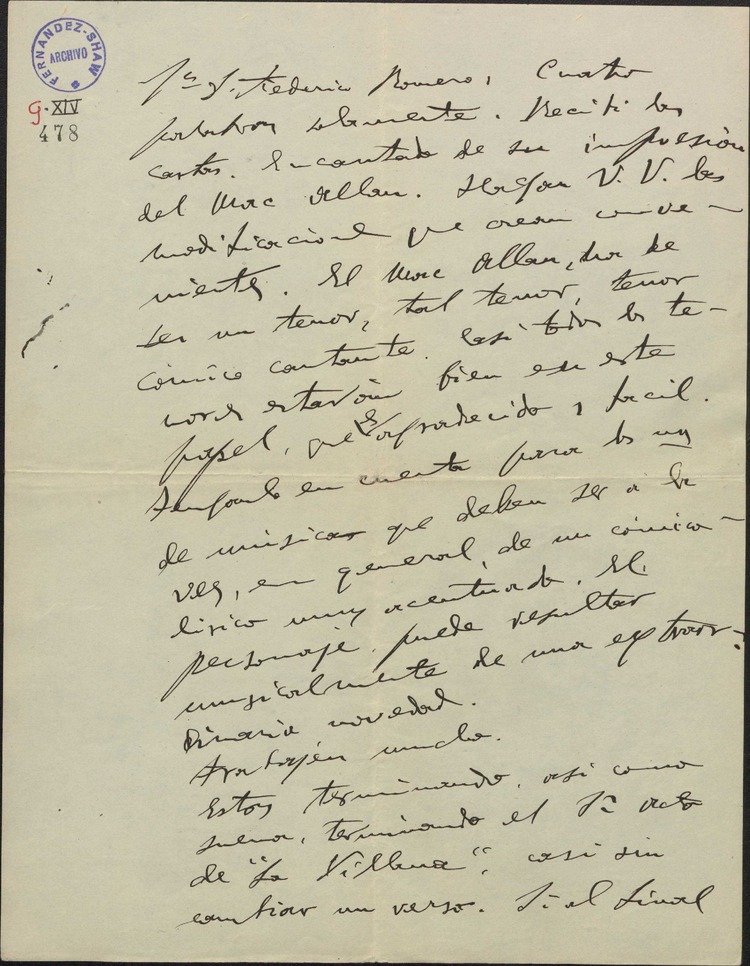 FERNANDEZ-SHAW
ARCHIVO
9-XIV
478
Sr. D. Federico Romero, Cuatro
palabras solamente. Recibí las
cartas. Encantado de su impresión
del Mac Allan. Hagan V.V. las
modificaciones que crean conve-
nientes. El Mac Allan, ha de
ser un tenor, tal tenor, tenor
cómico cantante. Casi todos los te-
nores estarán bien en este
papel, que es agradecido y facil.
Tenganlo en cuenta para los
de música que deben ser a la
vez, en general, de un cómico-
lírico muy acentuado. El
personaje puede resultar
musicalmente de una extraor-
dinaria novedad.
Trabajen mucho.
Estoy terminando, así como
suena, terminando el 1er acto
de "La Villana", casi sin
cambiar un verso. Si al final